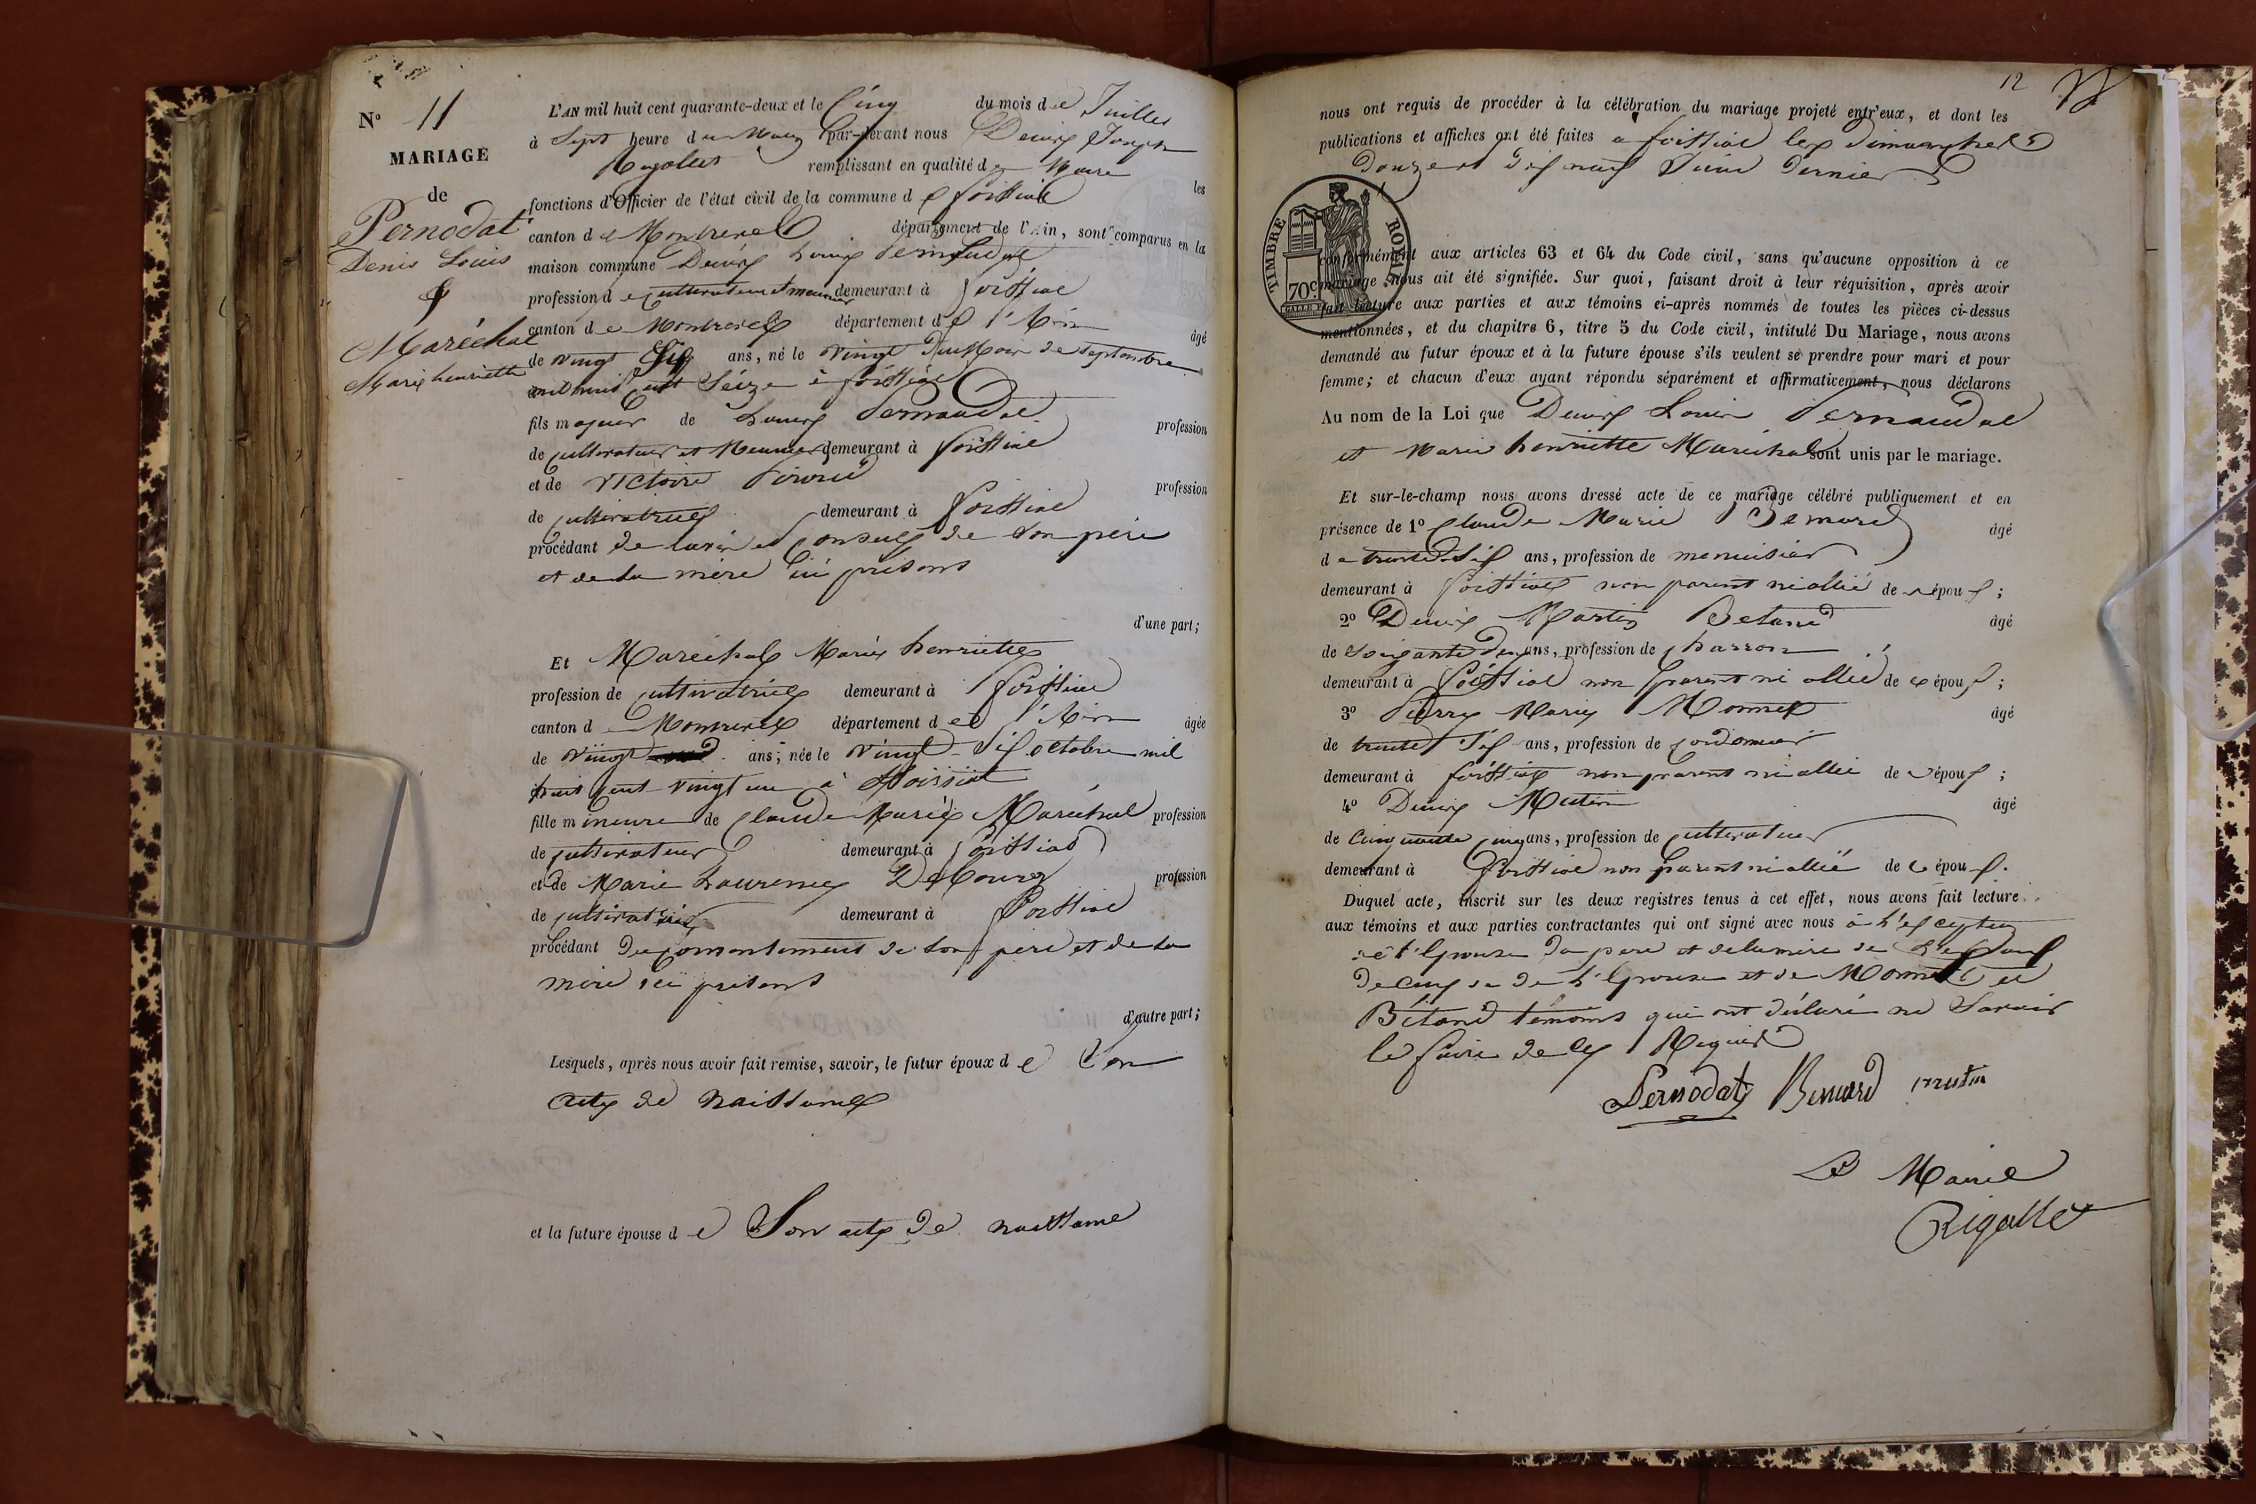 N° 11
MARIAGE
de
Pernodat
Denis Louis
&
Maréchal
Marie henriette
L'AN mil huit cent quarante-deux et le Cinq du mois de Juillet
à Sept heure du Matin par-devant nous Denis Joseph
Rigollet remplissant en qualité de Maire les
fonctions d'Officier de l'état civil de la commune de foissiat
canton de Montrevel département de l'Ain, sont comparus en la
maison commune Denis Louis Pernaudat
profession de cultivateur et meunier demeurant à foissiat
canton de Montrevel département de l'Ain âgé
de vingt Six ans, né le vingt septembre
mil huit cent Seize à foissiat
fils majeur de Louis Pernaudat profession
de cultivateur et Meunier demeurant à foissiat
et de Victoire profession
de cultivatrice demeurant à foissiat
procédant de l'avis et Conseil de son père
et de sa mère ici présents
d'une part;
Et Maréchal Marie henriette
profession de cultivatrice demeurant à foissiat
canton de Montrevel département de l'Ain âgée
de vingt ans, née le vingt Six octobre mil
huit cent vingt un à foissiat
fille mineure de Claude Marie Maréchal profession
de cultivateur demeurant à foissiat
et de Marie Laurence Debourg profession
de cultivatrice demeurant à foissiat
procédant du consentement de son père et de sa
mère ici présents
d'autre part;
Lesquels, après nous avoir fait remise, savoir, le futur époux de Son
acte de Naissance
et la future épouse de Son acte de naissance
12
nous ont requis de procéder à la célébration du mariage projeté entr'eux, et dont les
publications et affiches ont été faites a foissiat les dimanches
douze et dix neuf Juin dernier
TIMBRE ROYAL
70 c.
conformément aux articles 63 et 64 du Code civil, sans qu'aucune opposition à ce
mariage nous ait été signifiée. Sur quoi, faisant droit à leur réquisition, après avoir
fait lecture aux parties et aux témoins ci-après nommés de toutes les pièces ci-dessus
mentionnées, et du chapitre 6, titre 5 du Code civil, intitulé Du Mariage, nous avons
demandé au futur époux et à la future épouse s'ils veulent se prendre pour mari et pour
femme; et chacun d'eux ayant répondu séparément et affirmativement, nous déclarons
Au nom de la Loi que Denis Louis Pernaudat
et Marie henriette Maréchal sont unis par le mariage.
Et sur-le-champ nous avons dressé acte de ce mariage célébré publiquement et en
présence de 1° Claude Marie Bernard âgé
de trente Six ans, profession de menuisier
demeurant à foissiat non parent ni allié de l'époux;
2° Denis Martin Betand âgé
de Soixante deux ans, profession de charron
demeurant à foissiat non parent ni allié de l'époux;
3° Pierre Marie Monnet âgé
de trente Six ans, profession de cordonnier
demeurant à foissiat non parent ni allié de l'époux;
4° Denis Mutin âgé
de Cinquante cinq ans, profession de cultivateur
demeurant à foissiat non parent ni allié de l'époux.
Duquel acte, inscrit sur les deux registres tenus à cet effet, nous avons fait lecture
aux témoins et aux parties contractantes qui ont signé avec nous à l'exception
de l'Epouse du pere et de la mère de l'Epoux
de ceux de l'Epouse et de Monnet et
Bétand témoins qui ont déclaré ne Savoir
le faire de ce Requis
Pernodat Bernard mutin
Le Maire
Rigollet